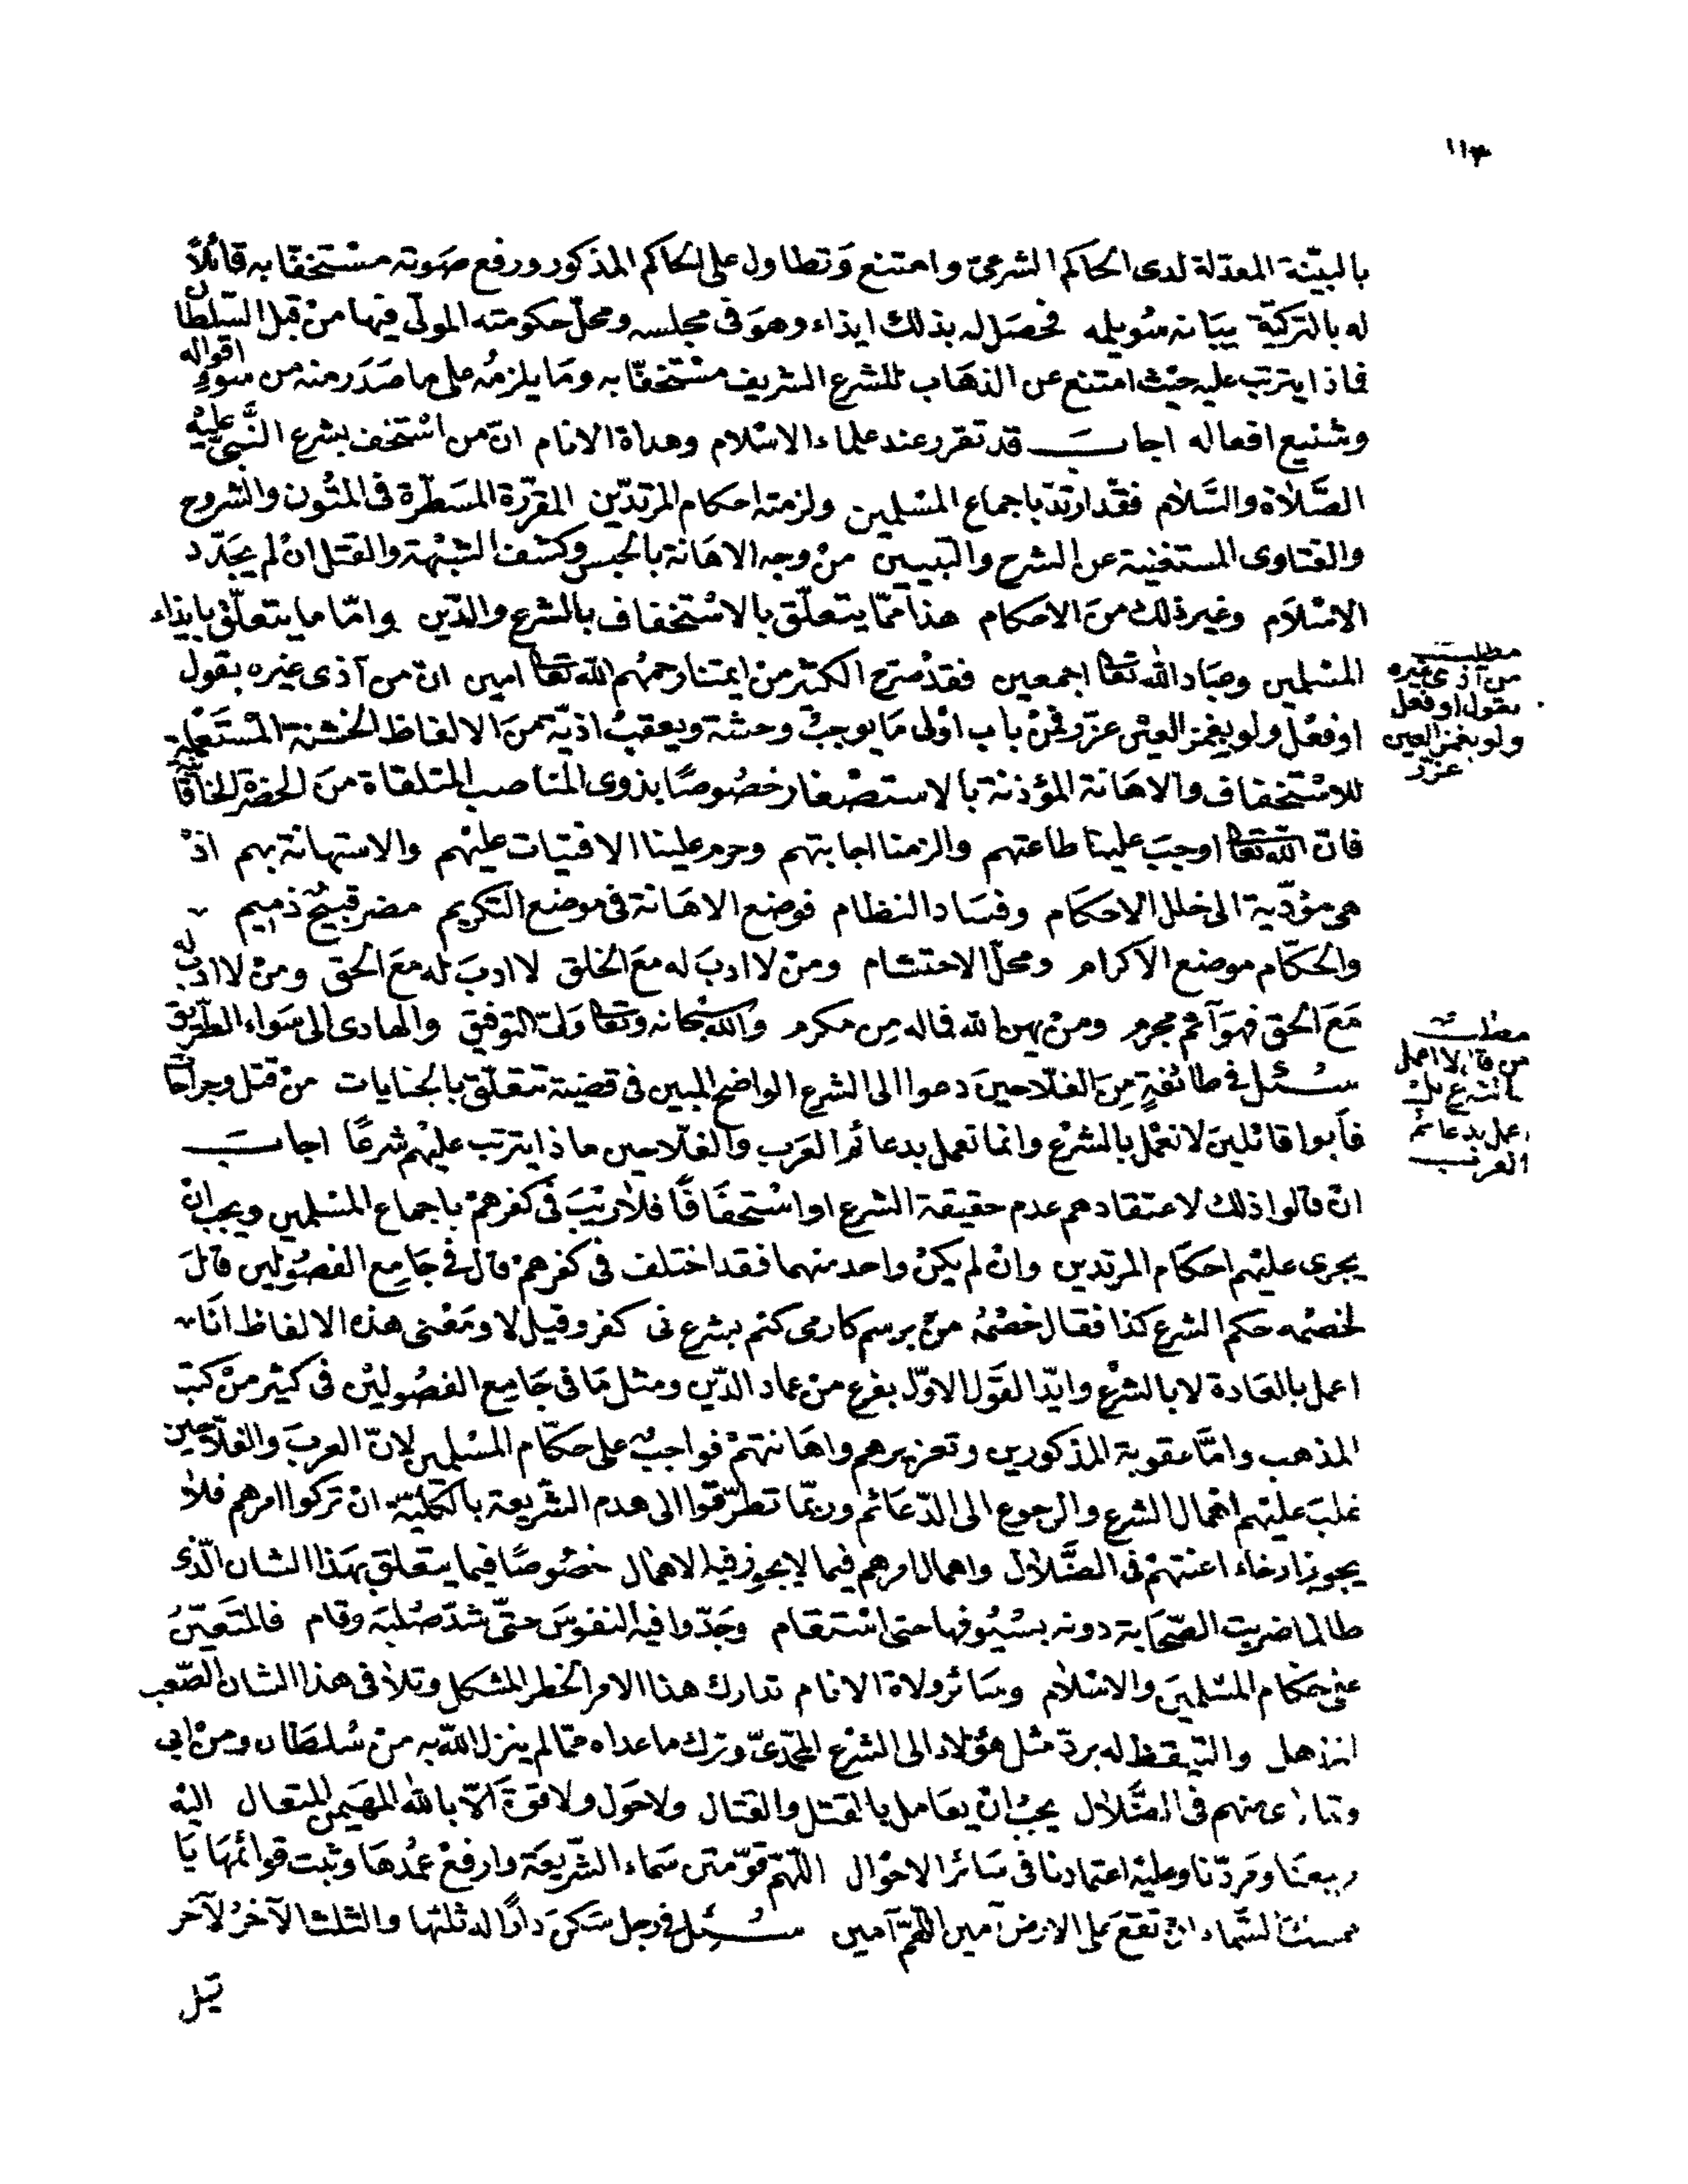 ١١٣
بالبيّنة المعدّلة لدى الحاكم الشرعىّ وامتنع وَتطاول على الحاكم المذكور ورفع صَوته مسْتخفّا به قائلاً
له بالتركيّة بيبَانه سُويلمه فحصَل له بذلك ايذاء وهوَ فى مجلسه ومحلّ حكومته المولّى فيها منْ قبل السّلطان
فماذا يترتب عليه حيْث امتنع عن الذهَاب للشرع الشريف مسْتخفّا به ومَا يلزمُه على ما صَدَر منه من سُوءِ اقواله
وشنيع افعاله اجابَ قد تقرر عند علماء الاسْلام وهداة الانام انّ من اسْتخف بشرع النَّبىّ عليْه
الصَّلاة والسَّلام فقد ارتدّ باجماع المسْلمين ولزمته احكام المرتدّين المقرّرة المسَطّرة فى المتُون والشروح
والفتاوى المستغنية عن الشرح والتبيين منْ وجه الاهَانة بالحبس وكشف الشبْهة والقتل انْ لم يجَدّد
الاسْلاَم وغير ذلك منَ الاحكام هذا ممّا يتعلّق بالاسْتخفاف بالشرع والدّين وامّا ما يتعلّق بايذاء
المسْلمين وعبَاد الله تعَالى اجمعين فقدْ صرّح الكثير منْ ايمتنا رحمهُم الله تعَالى امين انّ من آذى غيره بقول
اوفعْل ولو بغمز العيْن عزّر فمنْ باب اوْلى مَا يوجبُ وحشة ويعقبُ اذيّة منَ الالفاظ الخشنة المسْتَعْملة
للاسْتخفاف والاهَانة المؤذنة بالاستصْغار خصُوصًا بذوى المناصب المتلقاة منَ الحضرة الخاقانية
فانّ الله تعَالى اوجبَ علينا طاعتهم والزمنا اجابتهم وحرم علينا الافتيات عليْهم والاستهانة بهم اذْ
هى مؤدّية الى خلل الاحكَام وفسَاد النظام فوضع الاهَانة فى موضع التكريم مضر قبيحٌ ذميم
والحكّام موضع الاكرام ومحلّ الاحتشام ومنْ لا ادبَ له معَ الخلق لا ادبَ له معَ الحق ومنْ لا ادبَ له
مَعَ الحق فهوَ آثم مجرم ومنْ يهن الله فماله مِن مكرم والله سبْحانه وتعَالى ولىّ التوفيق والهادى الى سَواء الطّريق
سُئل فى طائفةٍ مِنَ الفلاحينَ دعوا الى الشرع الواضح المبين فى قضية تتعَلّق بالجنايات منْ قتل وجراحَات
فأبوا قائلينَ لا نعْمل بالشرْع وانما نعمل بدعائم العَرب والفلاّحين ماذا يترتب عليْهم شرعًا اجابَ
انْ قالوا ذلك لاعتقادهم عدم حقيقة الشرع او اسْتخفَافًا فلا ريْبَ فى كفرهمْ باجماع المسْلمين ويجب انْ
يجرى عليْهم احكَام المرتدين وانْ لم يكنْ واحد منهما فقد اختلف فى كفرهمْ قال فى جَامِع الفصُولين قالَ
لخصْمه حكم الشرع كذا فقال خصْمُه منْ برسم كار مى كنم بشرع نى كفر وقيل لا ومَعْنى هذه الالفاظ انَا
اعمل بالعَادة لا بالشرْع وايّد القَول الاوّل بفرع منْ عماد الدّين ومثل مَا فى جَامِع الفصُولينْ فى كثير منْ كتب
المذهب وامَّا عقوبة المذكورين وتعزيرهم واهَانتهمْ فواجبٌ على حكّام المسْلمين لانّ العربَ والفلاّحين
غلبَ عليْهم اهْمال الشرع والرجوع الى الدّعَائم وربمّا تطرّقوا الى هدم الشّريعة بالكليّة انْ تركوا امرهم فلا
يجوز ارخاء اعنتهمْ فى الضَّلاَل واهمال امرهم فيما لا يجوز فيه الاهمال خصُوصًا فيما يتعلق بهَذا الشان الّذى
طالما ضربت الصّحَابة دونه بسُيُوفها حتى اسْتقام وجَدّوا فيه النفوسَ حتّى شدّ صُلبَه وقام فالمتَعَيّنُ
على حكام المسْلمينَ والاسْلام وسَائر ولاة الانام تدارك هذا الامر الخطر المشكل وتلاْ فى هذا الشان الصّعب
المذهل والتيقظ له بردّ مثل هؤلاء الى الشرْع المحمّدىّ وترك ماعداه ممّا لم ينزل الله به منْ سُلطَان ومنْ ابى
وتمادى منهم فى الضَّلال يجبُ انْ يعَامل بالقتل والقتال ولاحَول ولا قوّة الاّ بالله المهَيمن المتعال اليْه
ومردّنا وعليْه اعتمادنا فى سَائر الاحْوال اللّهمّ قوّ متن سَماء الشّريعَة وارفعْ عمُدهَا وثبت قوائمَها يَا
السَّماء انْ تقعَ على الارض آمين اللّهمّ آمين سُئِل فى رجل سَكنَ دارًا له ثلثها والثلث الآخرُ لآخر
مطلب
من آذى غيره
بقول اوفعل
ولو بغمز العين
عزّر
مطلب
من قال لا اعمل
بالشرع بل
اعمل بدعائم
العرب